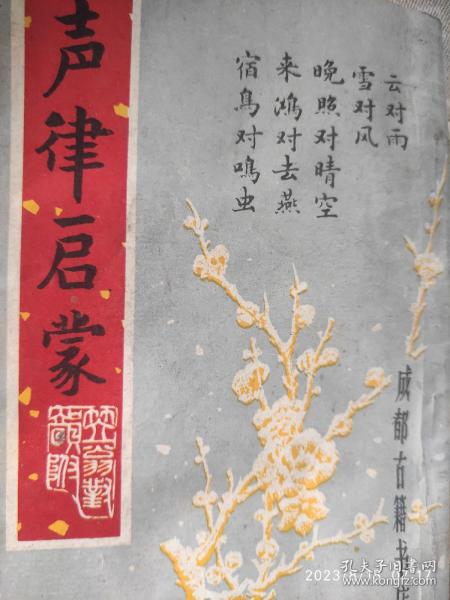 声律启蒙
笠翁对
韵附
云对雨
雪对风
晚照对晴空
来鸿对去燕
宿鸟对鸣虫
成都古籍书店
2023
孔夫子旧书网